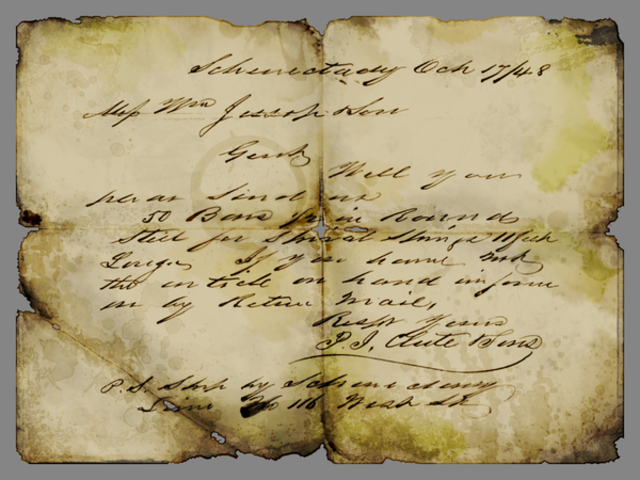 Schenectady Oct 17/48
Mess Wm Jessop & Son
Gents
Will you
please send us
50 Bars in Round
Steel for Spiral Springs 11 feet
Long. If you have not
the article on hand inform
us by Return Mail,
Respt Yours
P. I. Clute & Sons
P.S. Ship by Schenectady
Line No 116 West St